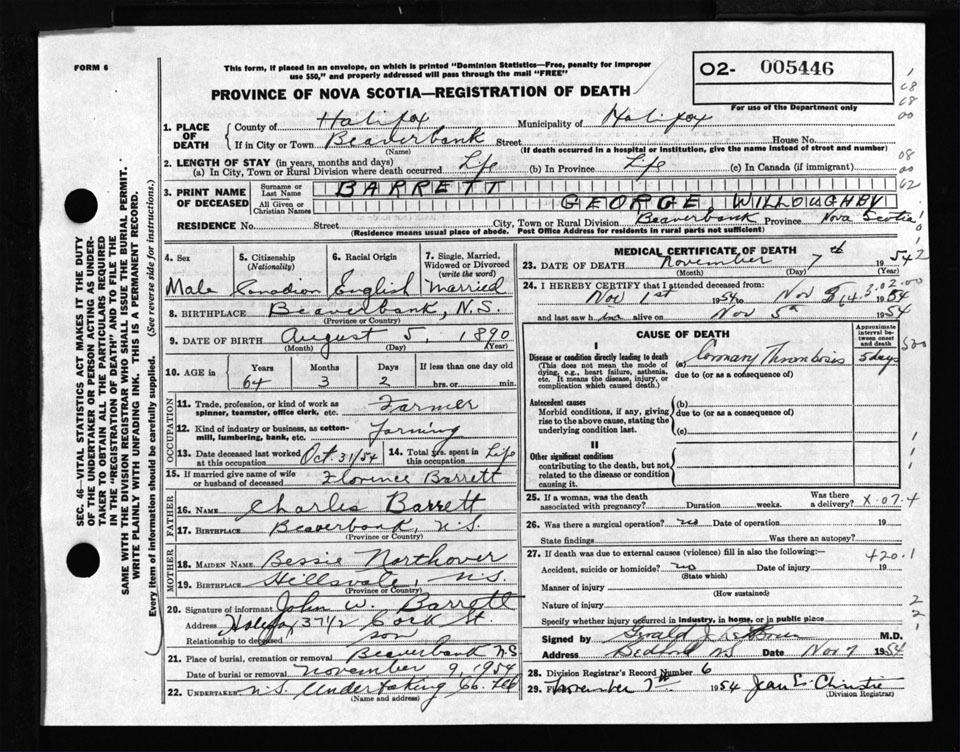 FORM 6
This form, if placed in an envelope, on which is printed "Dominion Statistics—Free, penalty for improper
use $50," and properly addressed will pass through the mail "FREE"
PROVINCE OF NOVA SCOTIA—REGISTRATION OF DEATH
O2- 005446
For use of the Department only
1. PLACE OF DEATH
County of Halifax Municipality of Halifax
If in City or Town Beaverbank Street House No.
(Name) (If death occurred in a hospital or institution, give the name instead of street and number)
2. LENGTH OF STAY (in years, months and days)
(a) In City, Town or Rural Division where death occurred Life (b) In Province Life (c) In Canada (if immigrant)
3. PRINT NAME OF DECEASED
Surname or Last Name BARRETT
All Given or Christian Names GEORGE WILLOUGHBY
RESIDENCE No. Street City, Town or Rural Division Beaverbank Province Nova Scotia
(Residence means usual place of abode. Post Office Address for residents in rural parts not sufficient)
4. Sex Male
5. Citizenship (Nationality) Canadian
6. Racial Origin English
7. Single, Married, Widowed or Divorced (write the word) Married
8. BIRTHPLACE Beaverbank, N.S.
(Province or Country)
9. DATE OF BIRTH August 5, 1890
(Month) (Day) (Year)
10. AGE in Years Months Days If less than one day old
64 3 2 hrs. or min.
OCCUPATION
11. Trade, profession, or kind of work as
spinner, teamster, office clerk, etc. Farmer
12. Kind of industry or business, as cotton-
mill, lumbering, bank, etc. Farming
13. Date deceased last worked at this occupation Oct. 31/54
14. Total yrs. spent in this occupation Life
15. If married give name of wife
or husband of deceased Florence Barrett
FATHER
16. NAME Charles Barrett
17. BIRTHPLACE Beaverbank, N.S.
(Province or Country)
MOTHER
18. MAIDEN NAME Bessie Northover
19. BIRTHPLACE Hillsvale, N.S.
(Province or Country)
20. Signature of informant John W. Barrett
Address Halifax 37 1/2 Cork St.
Relationship to deceased son
21. Place of burial, cremation or removal Beaverbank N.S
Date of burial or removal November 9, 1954
22. UNDERTAKER N.S. Undertaking Co.
(Name and address)
MEDICAL CERTIFICATE OF DEATH
23. DATE OF DEATH November 7th 1954
(Month) (Day) (Year)
24. I HEREBY CERTIFY that I attended deceased from:
Nov 1st 1954 to Nov 1954
and last saw h im alive on Nov 5th 1954
CAUSE OF DEATH
Approximate interval between onset and death
I
Disease or condition directly leading to death
(This does not mean the mode of
dying, e.g., heart failure, asthenia,
etc. It means the disease, injury, or
complication which caused death.)
(a) Coronary Thrombosis 5 days
due to (or as a consequence of)
Antecedent causes
Morbid conditions, if any, giving
rise to the above cause, stating the
underlying condition last.
(b)
due to (or as a consequence of)
(c)
II
Other significant conditions
contributing to the death, but not
related to the disease or condition
causing it
25. If a woman, was the death
associated with pregnancy? Duration weeks. Was there a delivery? X-07-4
26. Was there a surgical operation? no Date of operation 19
State findings Was there an autopsy?
27. If death was due to external causes (violence) fill in also the following:— 420.1
Accident, suicide or homicide? no Date of injury 19
(State which)
Manner of injury
(How sustained)
Nature of injury
Specify whether injury occurred in industry, in home, or in public place
Signed by Gerald M.D.
Address Bedford NS Date Nov 7 1954
28. Division Registrar's Record Number 6
29. Filed November 7th 1954 Jean L. Christie
(Division Registrar)
SEC. 46—VITAL STATISTICS ACT MAKES IT THE DUTY
OF THE UNDERTAKER OR PERSON ACTING AS UNDER-
TAKER TO OBTAIN ALL THE PARTICULARS REQUIRED
IN THE "REGISTRATION OF DEATH" AND TO FILE THE
SAME WITH THE DIVISION REGISTRAR WHO SHALL ISSUE THE BURIAL PERMIT.
WRITE PLAINLY WITH UNFADING INK. THIS IS A PERMANENT RECORD.
Every item of information should be carefully supplied. (See reverse side for instructions.)